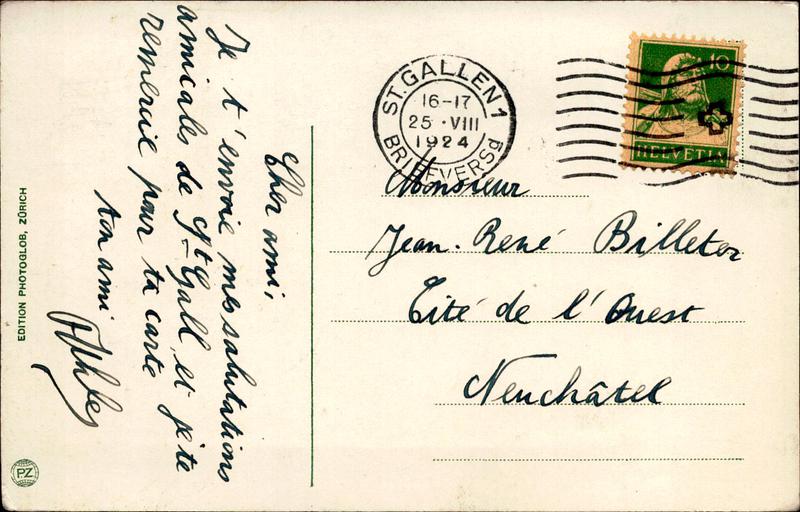 Cher ami,
Je t'envoie mes salutations
amicales de St Gall, et je te
remercie pour ta carte
ton ami
EDITION PHOTOGLOB, ZÜRICH
PZ
ST. GALLEN 1
16-17
25 · VIII
1924
BRIEFVERSd
10
HELVETIA
Monsieur
Jean-René Billeter
Cité de l'Ouest
Neuchâtel